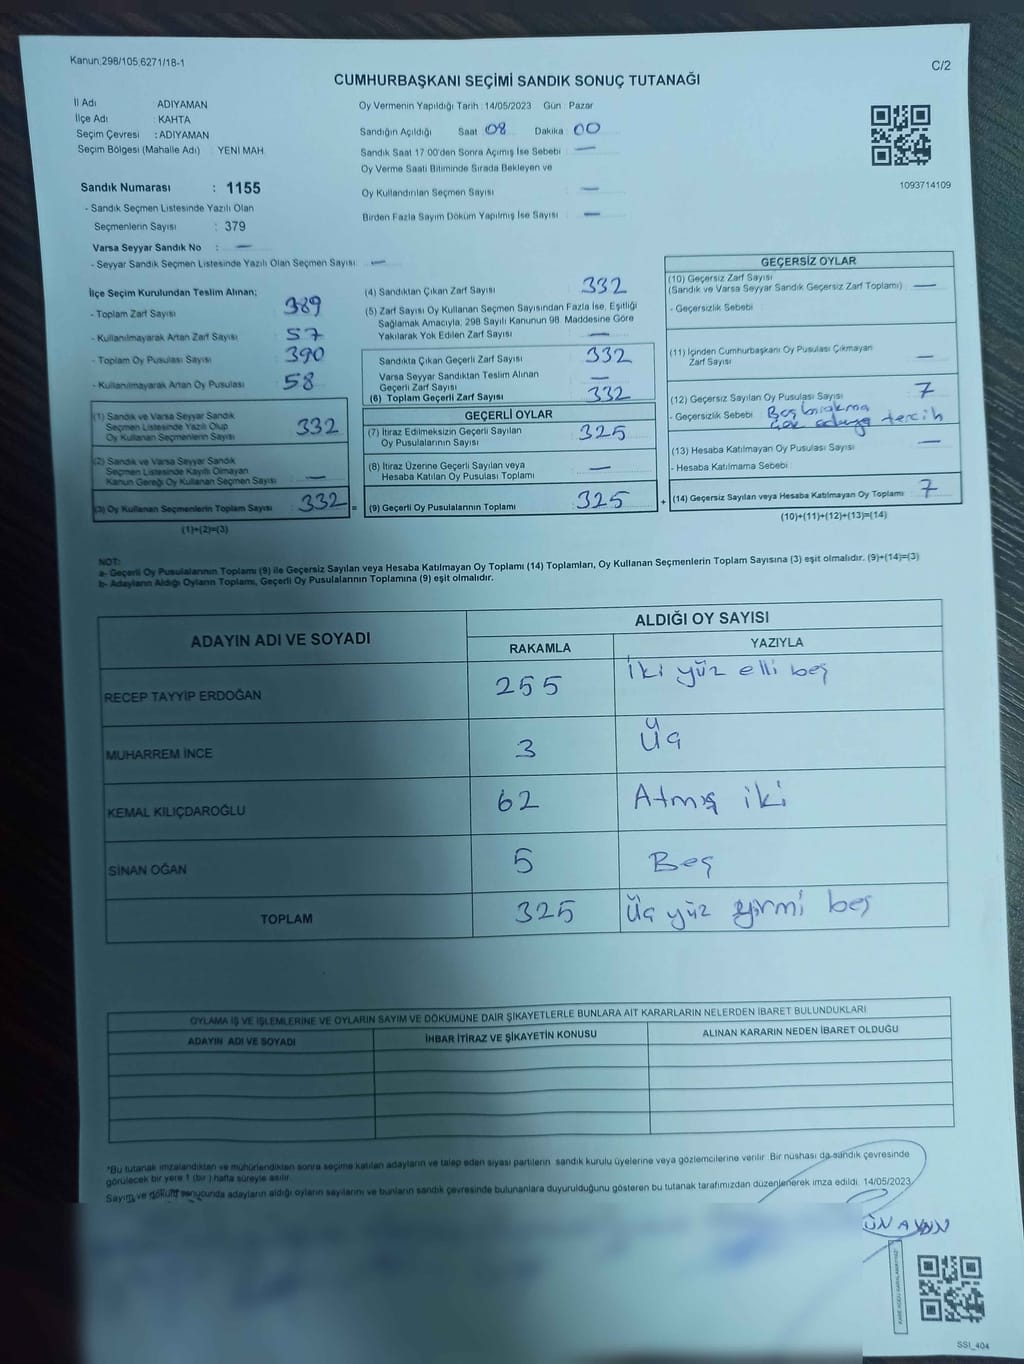 Kanun,298/105,6271/18-1
C/2
CUMHURBAŞKANI SEÇİMİ SANDIK SONUÇ TUTANAĞI
İl Adı ADIYAMAN
İlçe Adı : KAHTA
Seçim Çevresi : ADIYAMAN
Seçim Bölgesi (Mahalle Adı) YENİ MAH.
Sandık Numarası : 1155
- Sandık Seçmen Listesinde Yazılı Olan
Seçmenlerin Sayısı : 379
Varsa Seyyar Sandık No : —
- Seyyar Sandık Seçmen Listesinde Yazılı Olan Seçmen Sayısı —
Oy Vermenin Yapıldığı Tarih : 14/05/2023 Gün : Pazar
Sandığın Açıldığı Saat 08 Dakika 00
Sandık Saat 17:00'den Sonra Açımış İse Sebebi : —
Oy Verme Saati Bitiminde Sırada Bekleyen ve
Oy Kullandırılan Seçmen Sayısı —
Birden Fazla Sayım Döküm Yapılmış İse Sayısı —
1093714109
İlçe Seçim Kurulundan Teslim Alınan;
- Toplam Zarf Sayısı 389
- Kullanılmayarak Artan Zarf Sayısı 57
- Toplam Oy Pusulası Sayısı 390
- Kullanılmayarak Artan Oy Pusulası 58
(1) Sandık ve Varsa Seyyar Sandık
Seçmen Listesinde Yazılı Olup
Oy Kullanan Seçmenlerin Sayısı 332
(2) Sandık ve Varsa Seyyar Sandık
Seçmen Listesinde Kayıtlı Olmayan
Kanun Gereği Oy Kullanan Seçmen Sayısı —
(3) Oy Kullanan Seçmenlerin Toplam Sayısı 332 =
(1)+(2)=(3)
(4) Sandıktan Çıkan Zarf Sayısı 332
(5) Zarf Sayısı Oy Kullanan Seçmen Sayısından Fazla İse, Eşitliği
Sağlamak Amacıyla, 298 Sayılı Kanunun 98. Maddesine Göre
Yakılarak Yok Edilen Zarf Sayısı —
Sandıkta Çıkan Geçerli Zarf Sayısı 332
Varsa Seyyar Sandıktan Teslim Alınan
Geçerli Zarf Sayısı —
(6) Toplam Geçerli Zarf Sayısı 332
GEÇERLİ OYLAR
(7) İtiraz Edilmeksizin Geçerli Sayılan
Oy Pusulalarının Sayısı 325
(8) İtiraz Üzerine Geçerli Sayılan veya
Hesaba Katılan Oy Pusulası Toplamı —
(9) Geçerli Oy Pusulalarının Toplamı 325 +
GEÇERSİZ OYLAR
(10) Geçersiz Zarf Sayısı
(Sandık ve Varsa Seyyar Sandık Geçersiz Zarf Toplamı) —
- Geçersizlik Sebebi :
(11) İçinden Cumhurbaşkanı Oy Pusulası Çıkmayan
Zarf Sayısı —
(12) Geçersiz Sayılan Oy Pusulası Sayısı 7
- Geçersizlik Sebebi Boş bırakma
tercih
(13) Hesaba Katılmayan Oy Pusulası Sayısı —
- Hesaba Katılmama Sebebi
(14) Geçersiz Sayılan veya Hesaba Katılmayan Oy Toplamı 7
(10)+(11)+(12)+(13)=(14)
NOT:
a- Geçerli Oy Pusulalarının Toplamı (9) ile Geçersiz Sayılan veya Hesaba Katılmayan Oy Toplamı (14) Toplamları, Oy Kullanan Seçmenlerin Toplam Sayısına (3) eşit olmalıdır. (9)+(14)=(3)
b- Adayların Aldığı Oyların Toplamı, Geçerli Oy Pusulalarının Toplamına (9) eşit olmalıdır.
ADAYIN ADI VE SOYADI ALDIĞI OY SAYISI
RAKAMLA YAZIYLA
RECEP TAYYİP ERDOĞAN 255 İki yüz elli beş
MUHARREM İNCE 3 Üç
KEMAL KILIÇDAROĞLU 62 Atmış iki
SİNAN OĞAN 5 Beş
TOPLAM 325 Üç yüz yirmi beş
OYLAMA İŞ VE İŞLEMLERİNE VE OYLARIN SAYIM VE DÖKÜMÜNE DAİR ŞİKAYETLERLE BUNLARA AİT KARARLARIN NELERDEN İBARET BULUNDUKLARI
ADAYIN ADI VE SOYADI İHBAR İTİRAZ VE ŞİKAYETİN KONUSU ALINAN KARARIN NEDEN İBARET OLDUĞU
*Bu tutanak imzalandıktan ve mühürlendikten sonra seçime katılan adayların ve talep eden siyasi partilerin sandık kurulu üyelerine veya gözlemcilerine verilir. Bir nüshası da sandık çevresinde
görülecek bir yere 1 (bir) hafta süreyle asılır.
Sayım ve döküm sonucunda adayların aldığı oyların sayılarını ve bunların sandık çevresinde bulunanlara duyurulduğunu gösteren bu tutanak tarafımızdan düzenlenerek imza edildi. 14/05/2023
SSİ_404